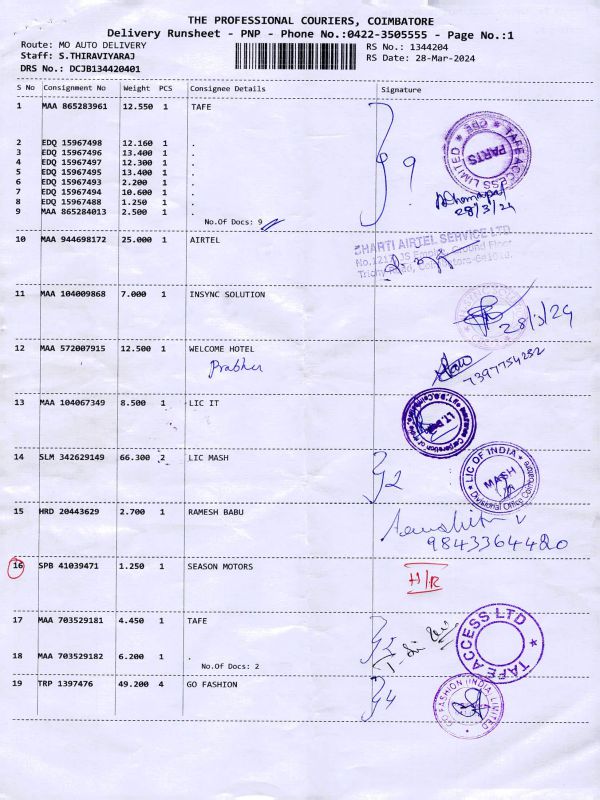 THE PROFESSIONAL COURIERS, COIMBATORE
Delivery Runsheet - PNP - Phone No.:0422-3505555 - Page No.:1
Route: MO AUTO DELIVERY RS No.: 1344204
Staff: S.THIRAVIYARAJ RS Date: 28-Mar-2024
DRS No.: DCJB134420401
S No Consignment No Weight PCS Consignee Details Signature
1 MAA 865283961 12.550 1 TAFE
TAFE ACCESS LIMITED PARTS CBE
2 EDQ 15967498 12.160 1 .
3 EDQ 15967496 13.400 1 .
4 EDQ 15967497 12.300 1 .
5 EDQ 15967495 13.400 1 .
6 EDQ 15967493 2.200 1 .
7 EDQ 15967494 10.600 1 .
8 EDQ 15967488 1.250 1 .
9 MAA 865284013 2.500 1 .
9
28/3/24
No.Of Docs: 9
10 MAA 944698172 25.000 1 AIRTEL
BHARTI AIRTEL SERVICE LTD
Ground Floor
11 MAA 104009868 7.000 1 INSYNC SOLUTION
28/3/24
12 MAA 572007915 12.500 1 WELCOME HOTEL
Prabhu
7397754252
13 MAA 104067349 8.500 1 LIC IT
14 SLM 342629149 66.300 2 LIC MASH
2
LIC OF INDIA MASH Divisional Office
15 HRD 20443629 2.700 1 RAMESH BABU
9843364420
16 SPB 41039471 1.250 1 SEASON MOTORS
H/R
17 MAA 703529181 4.450 1 TAFE
2
TAFE ACCESS LTD
18 MAA 703529182 6.200 1 .
No.Of Docs: 2
19 TRP 1397476 49.200 4 GO FASHION
4
GO FASHION (INDIA) LIMITED